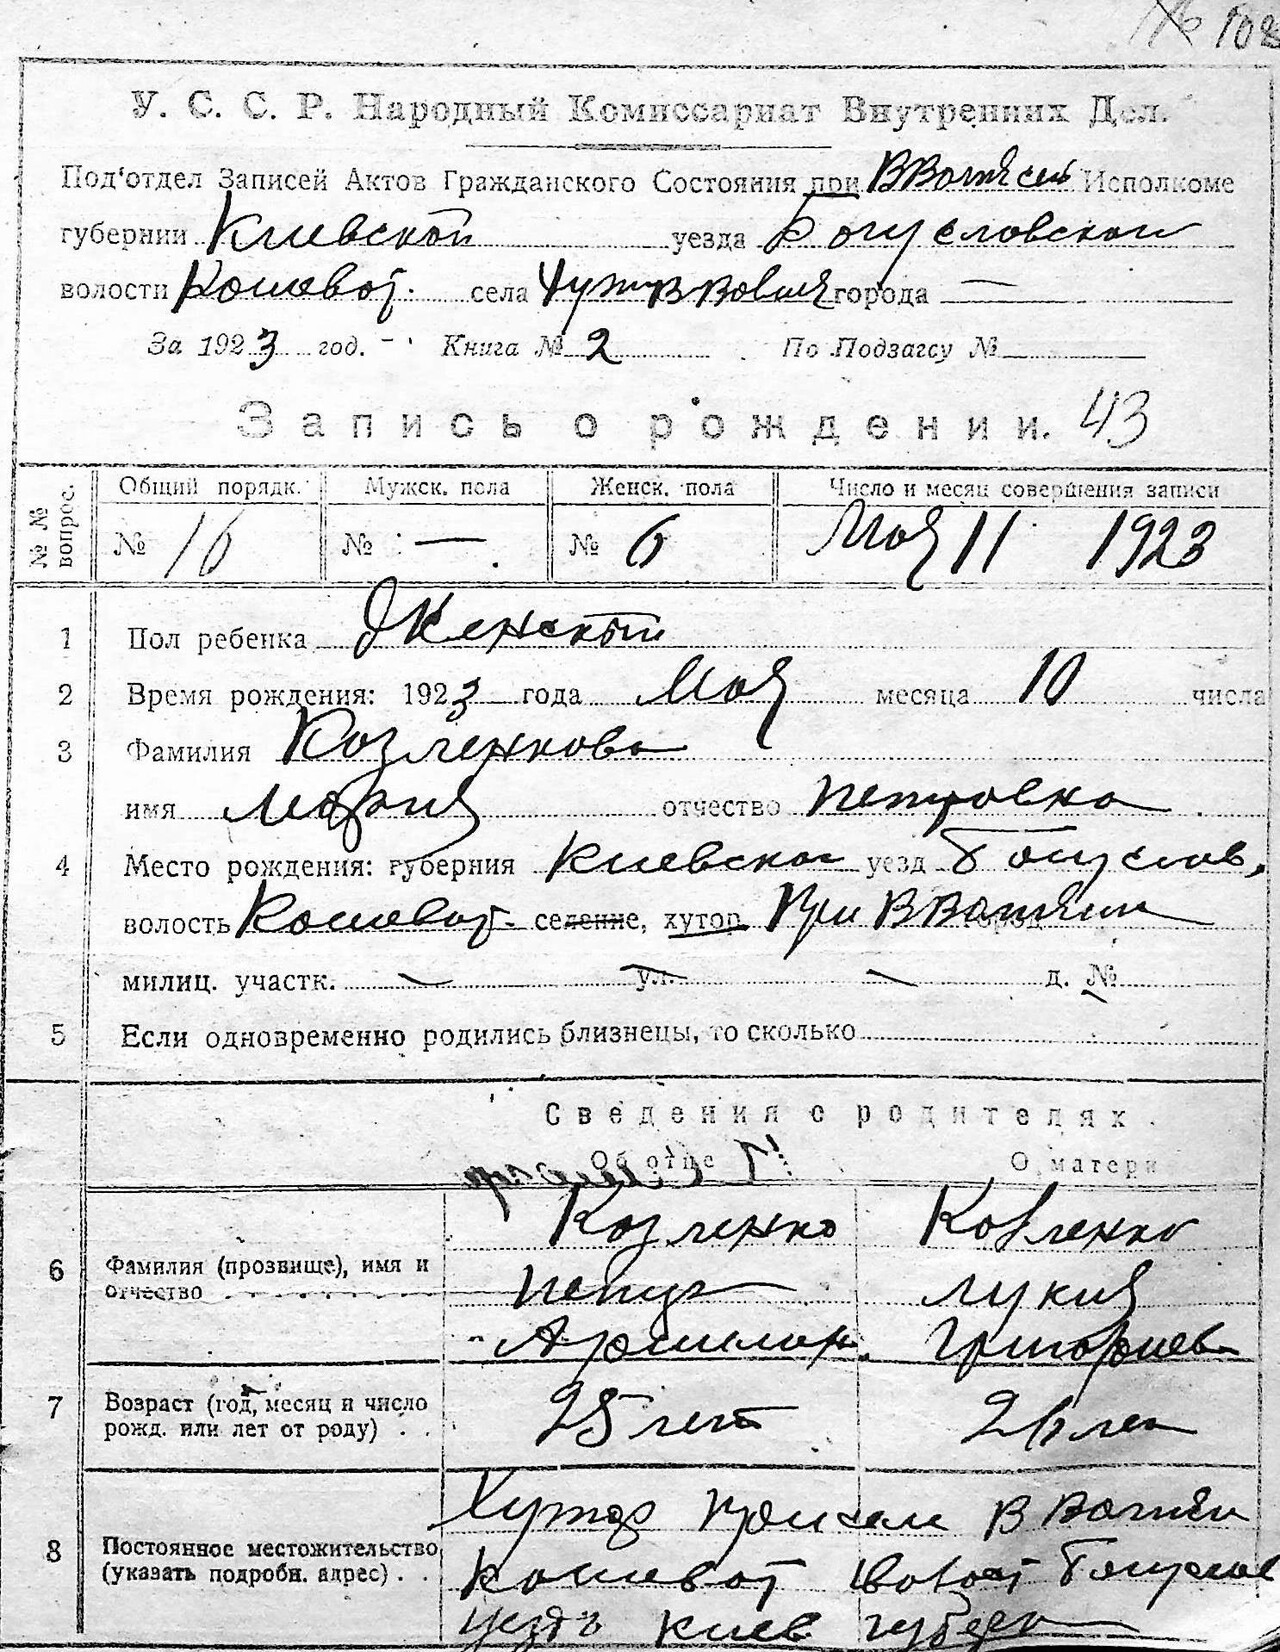 108
У. С. С. Р. Народный Комиссариат Внутренних Дел.
Под'отдел Записей Актов Гражданского Состояния при Исполкоме
губернии Киевской уезда Богусловской
волости Кошеват. села города —
За 1923 год. Книга № 2 По Подзагсу №
Запись о рождении. 43
№ № вопрос. Общий порядк. Мужск. пола Женск. пола Число и месяц совершения записи
№ 16 № — № 6 Мая 11 1923
1 Пол ребенка Женской
2 Время рождения: 1923 года Мая месяца 10 числа
3 Фамилия Козленкова
имя Мария отчество Петровна
4 Место рождения: губерния Киевская уезд Богуслов.
волость Кошеват. селение, хутор При город
милиц. участк. — ул. — д. №
5 Если одновременно родились близнецы, то сколько
Сведения о родителях
Об отце О матери
6 Фамилия (прозвище), имя и отчество
Козленко Козленко
Петр Лукия
Григориев
7 Возраст (год, месяц и число рожд. или лет от роду) . .
25 лет 26 лет
8 Постоянное местожительство (указать подробн. адрес) . .
Хутор при селе
Кошеват волост Богуслов
уездъ Киев губерн